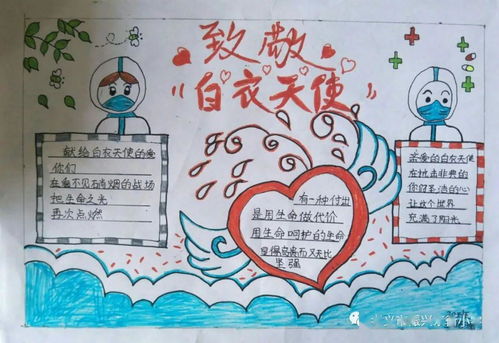 致敬
"白衣天使"
献给白衣天使的爱
你们
在看不见硝烟的战场
把生命之光
再次点燃
有一种付出
是用生命做代价
用生命呵护的生命
显得高贵而又无比
坚强
亲爱的白衣天使
在抗击非典的
你们圣洁的心
让这个世界
充满了阳光